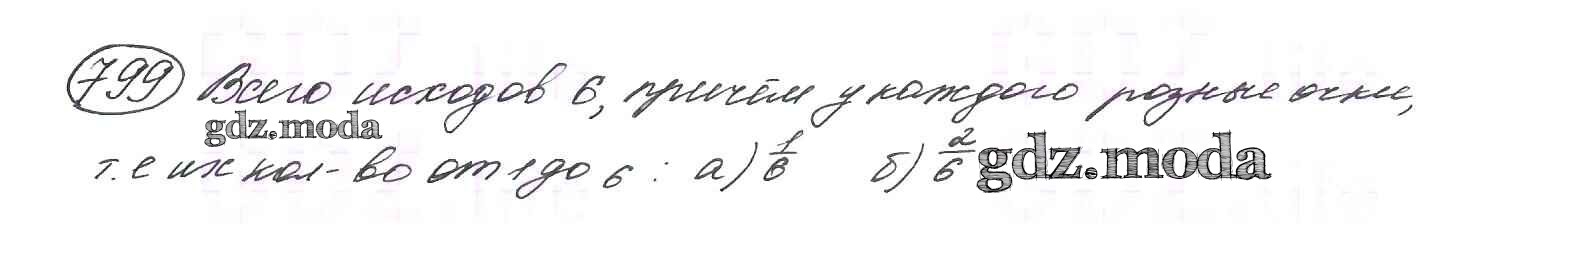 799 Всего исходов 6, причём у каждого разные очки,
gdz.moda
т.е их кол-во от 1 до 6 : а) 1/6 б) 2/6 gdz.moda